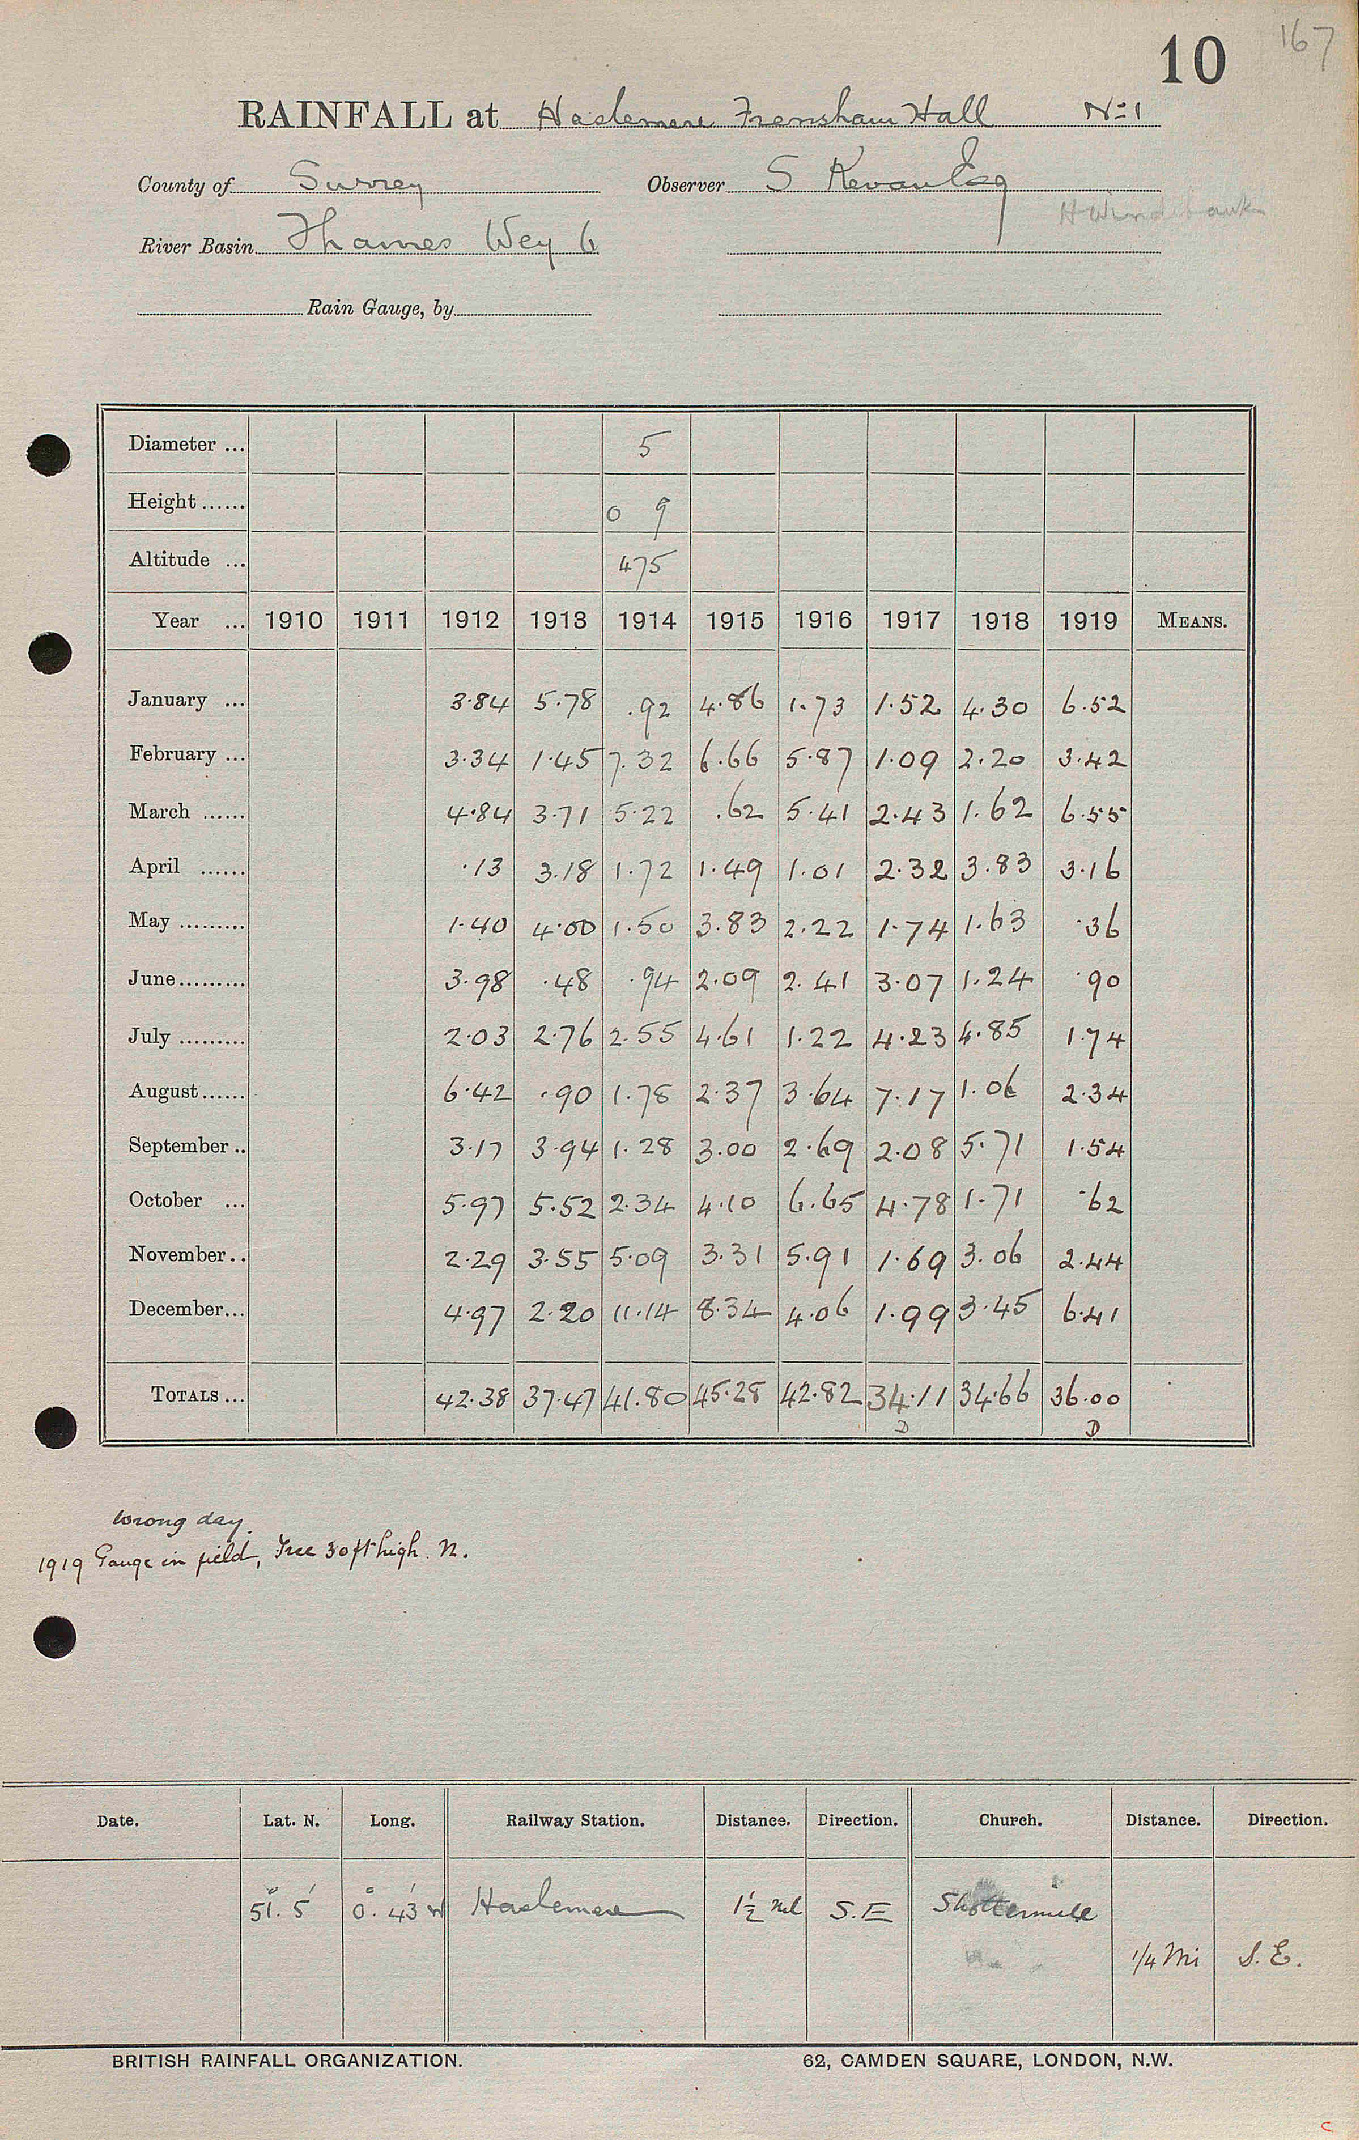 10 167
RAINFALL at Haslemere Frensham Hall No 1
County of Surrey Observer S Kevan Esq
H Windibank
River Basin Thames Wey 6
Rain Gauge, by
Diameter ... 5
Height ...... 0 9
Altitude ... 475
Year ... 1910 1911 1912 1913 1914 1915 1916 1917 1918 1919 MEANS.
January ... 3.84 5.78 .92 4.86 1.73 1.52 4.30 6.52
February ... 3.34 1.45 7.32 6.66 5.87 1.09 2.20 3.42
March ...... 4.84 3.71 5.22 .62 5.41 2.43 1.62 6.55
April ...... .13 3.18 1.72 1.49 1.01 2.32 3.83 3.16
May ......... 1.40 4.00 1.50 3.83 2.22 1.74 1.63 .36
June......... 3.98 .48 .94 2.09 2.41 3.07 1.24 .90
July ......... 2.03 2.76 2.55 4.61 1.22 4.23 4.85 1.74
August...... 6.42 .90 1.78 2.37 3.64 7.17 1.06 2.34
September .. 3.17 3.94 1.28 3.00 2.69 2.08 5.71 1.54
October ... 5.97 5.52 2.34 4.10 6.65 4.78 1.71 .62
November.. 2.29 3.55 5.09 3.31 5.91 1.69 3.06 2.44
December... 4.97 2.20 11.14 8.34 4.06 1.99 3.45 6.41
TOTALS ... 42.38 37.47 41.80 45.28 42.82 34.11 34.66 36.00
D D
Wrong day.
1919 Gauge in field, Tree 30 ft high. N.
Date. Lat. N. Long. Railway Station. Distance. Direction. Church. Distance. Direction.
51° 5′ 0° 43′ W Haslemere 1½ ml S.E Shottermill
1/4 Mi S.E.
BRITISH RAINFALL ORGANIZATION. 62, CAMDEN SQUARE, LONDON, N.W.
C